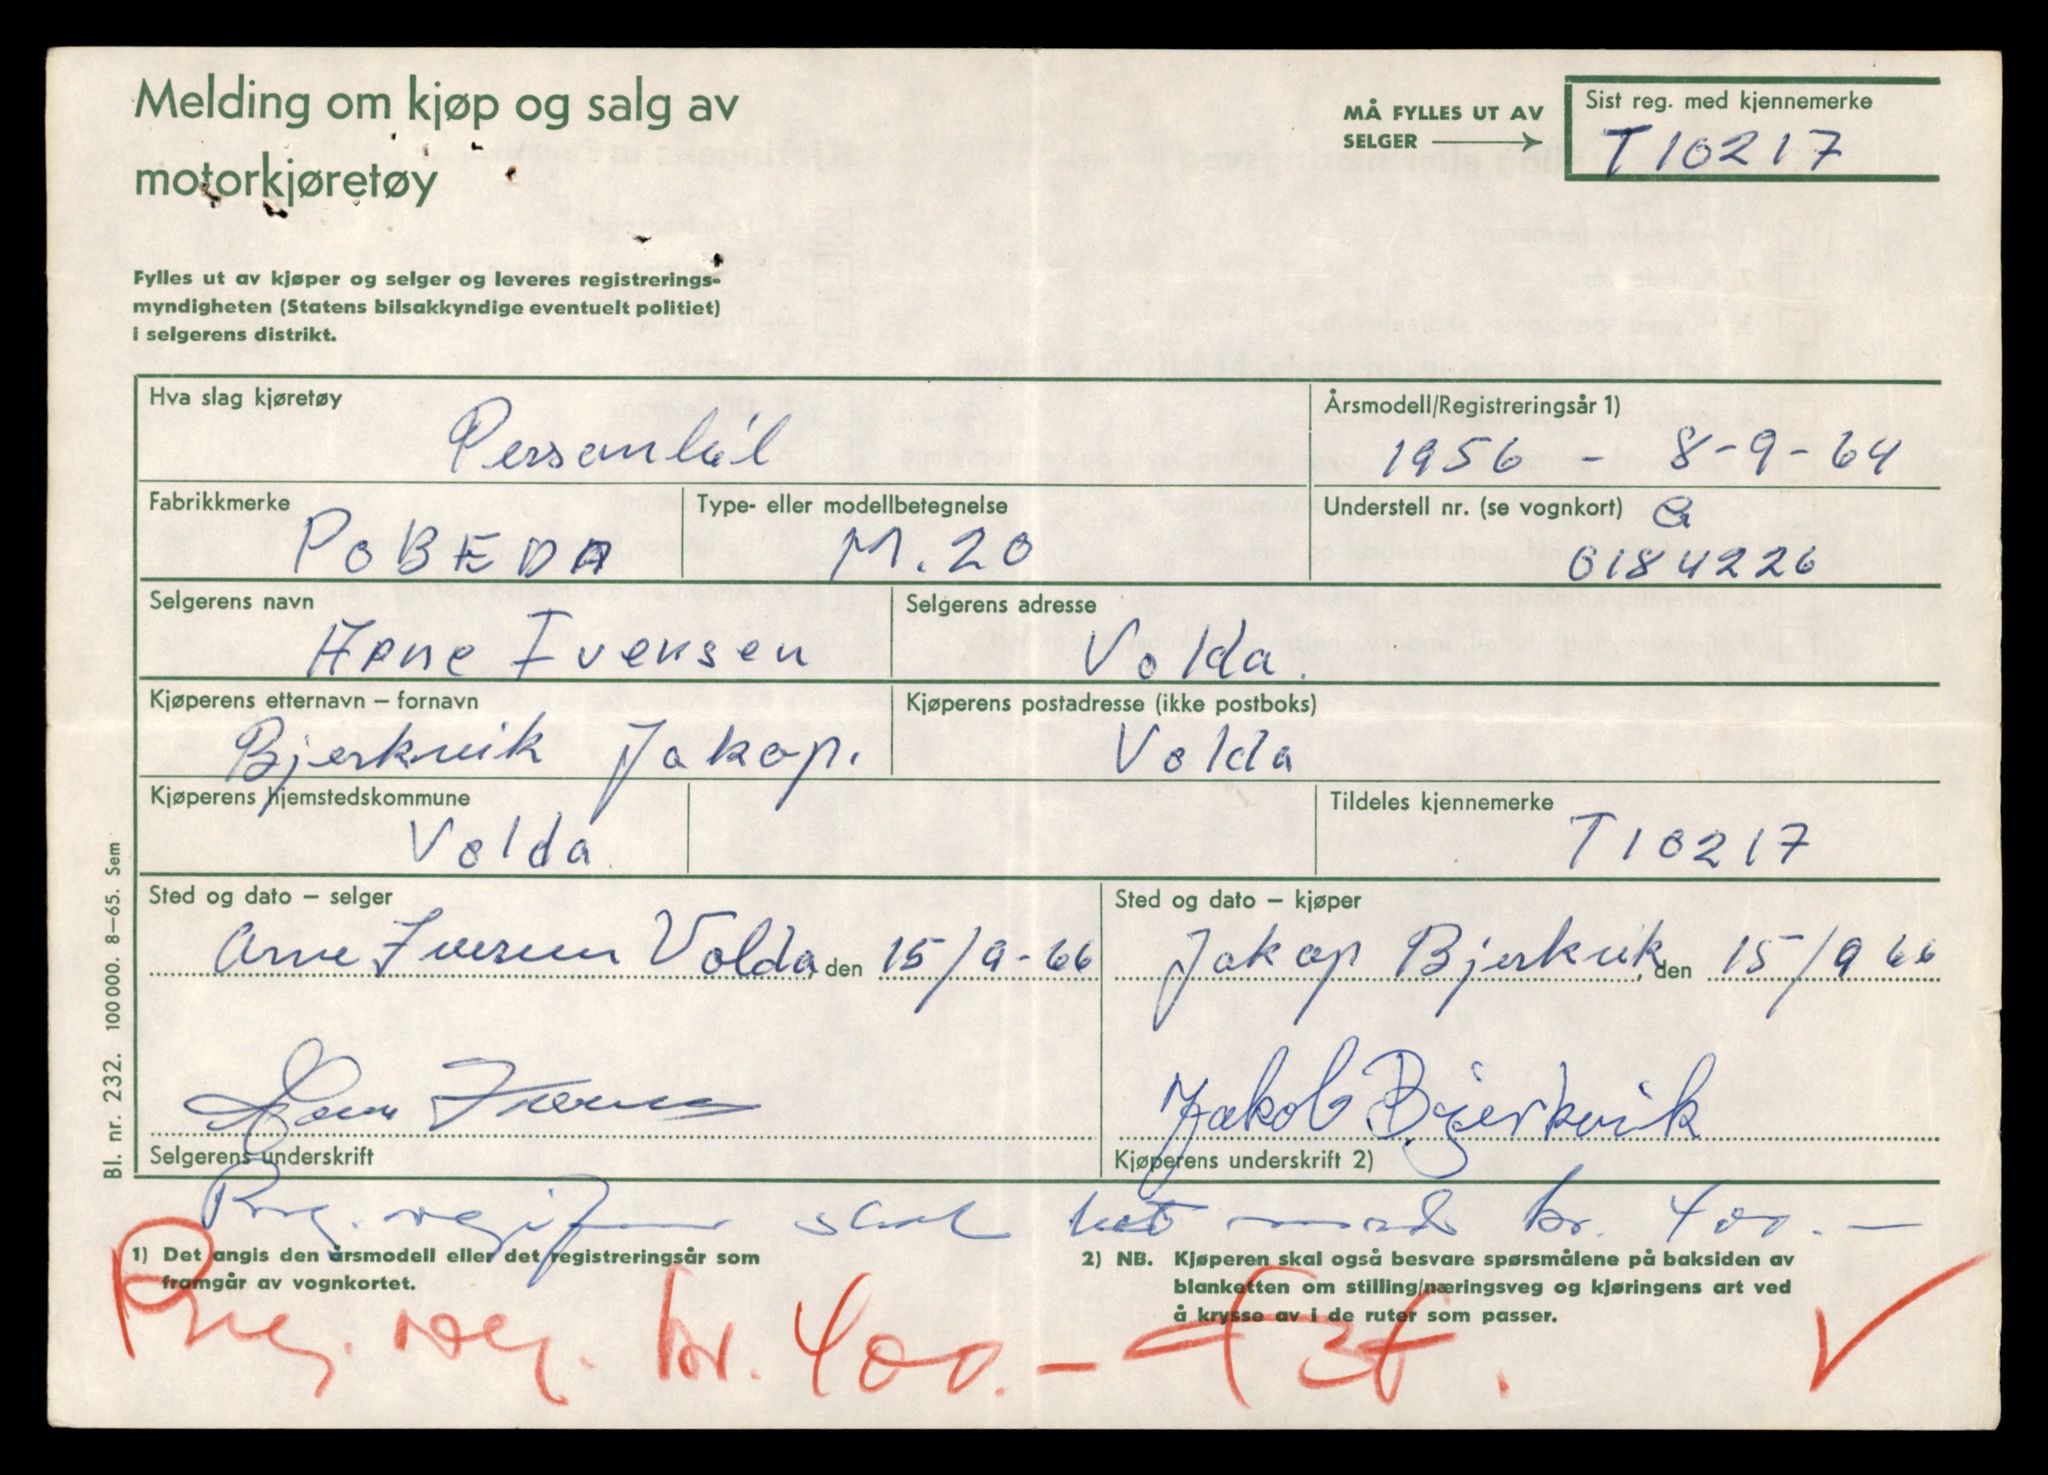 Melding om kjøp og salg av
motorkjøretøy
MÅ FYLLES UT AV
SELGER
Sist reg. med kjennemerke
T 10217
Fylles ut av kjøper og selger og leveres registrerings-
myndigheten (Statens bilsakkyndige eventuelt politiet)
i selgerens distrikt.
Hva slag kjøretøy
Årsmodell/Registreringsår 1)
Personbil
1956 - 8-9-64
Fabrikkmerke
Type- eller modellbetegnelse
Understell nr. (se vognkort)
POBEDA
M.20
0184226
Selgerens navn
Selgerens adresse
Arne Iversen
Volda.
Kjøperens etternavn – fornavn
Kjøperens postadresse (ikke postboks)
Bjerkvik Jakop.
Volda
Kjøperens hjemstedskommune
Tildeles kjennemerke
Volda
T 10217
Sted og dato – selger
Sted og dato – kjøper
Arne Iversen Volda, den 15/9-66
Jakop Bjerkvik, den 15/9 66
Arne Iversen
Jakob Bjerkvik
Selgerens underskrift
Kjøperens underskrift 2)
kr. 400.-
1) Det angis den årsmodell eller det registreringsår som
framgår av vognkortet.
2) NB. Kjøperen skal også besvare spørsmålene på baksiden av
blanketten om stilling/næringsveg og kjøringens art ved
å krysse av i de ruter som passer.
Reg. kr. 400.-
Bl. nr. 232. 100 000. 8–65. Sem